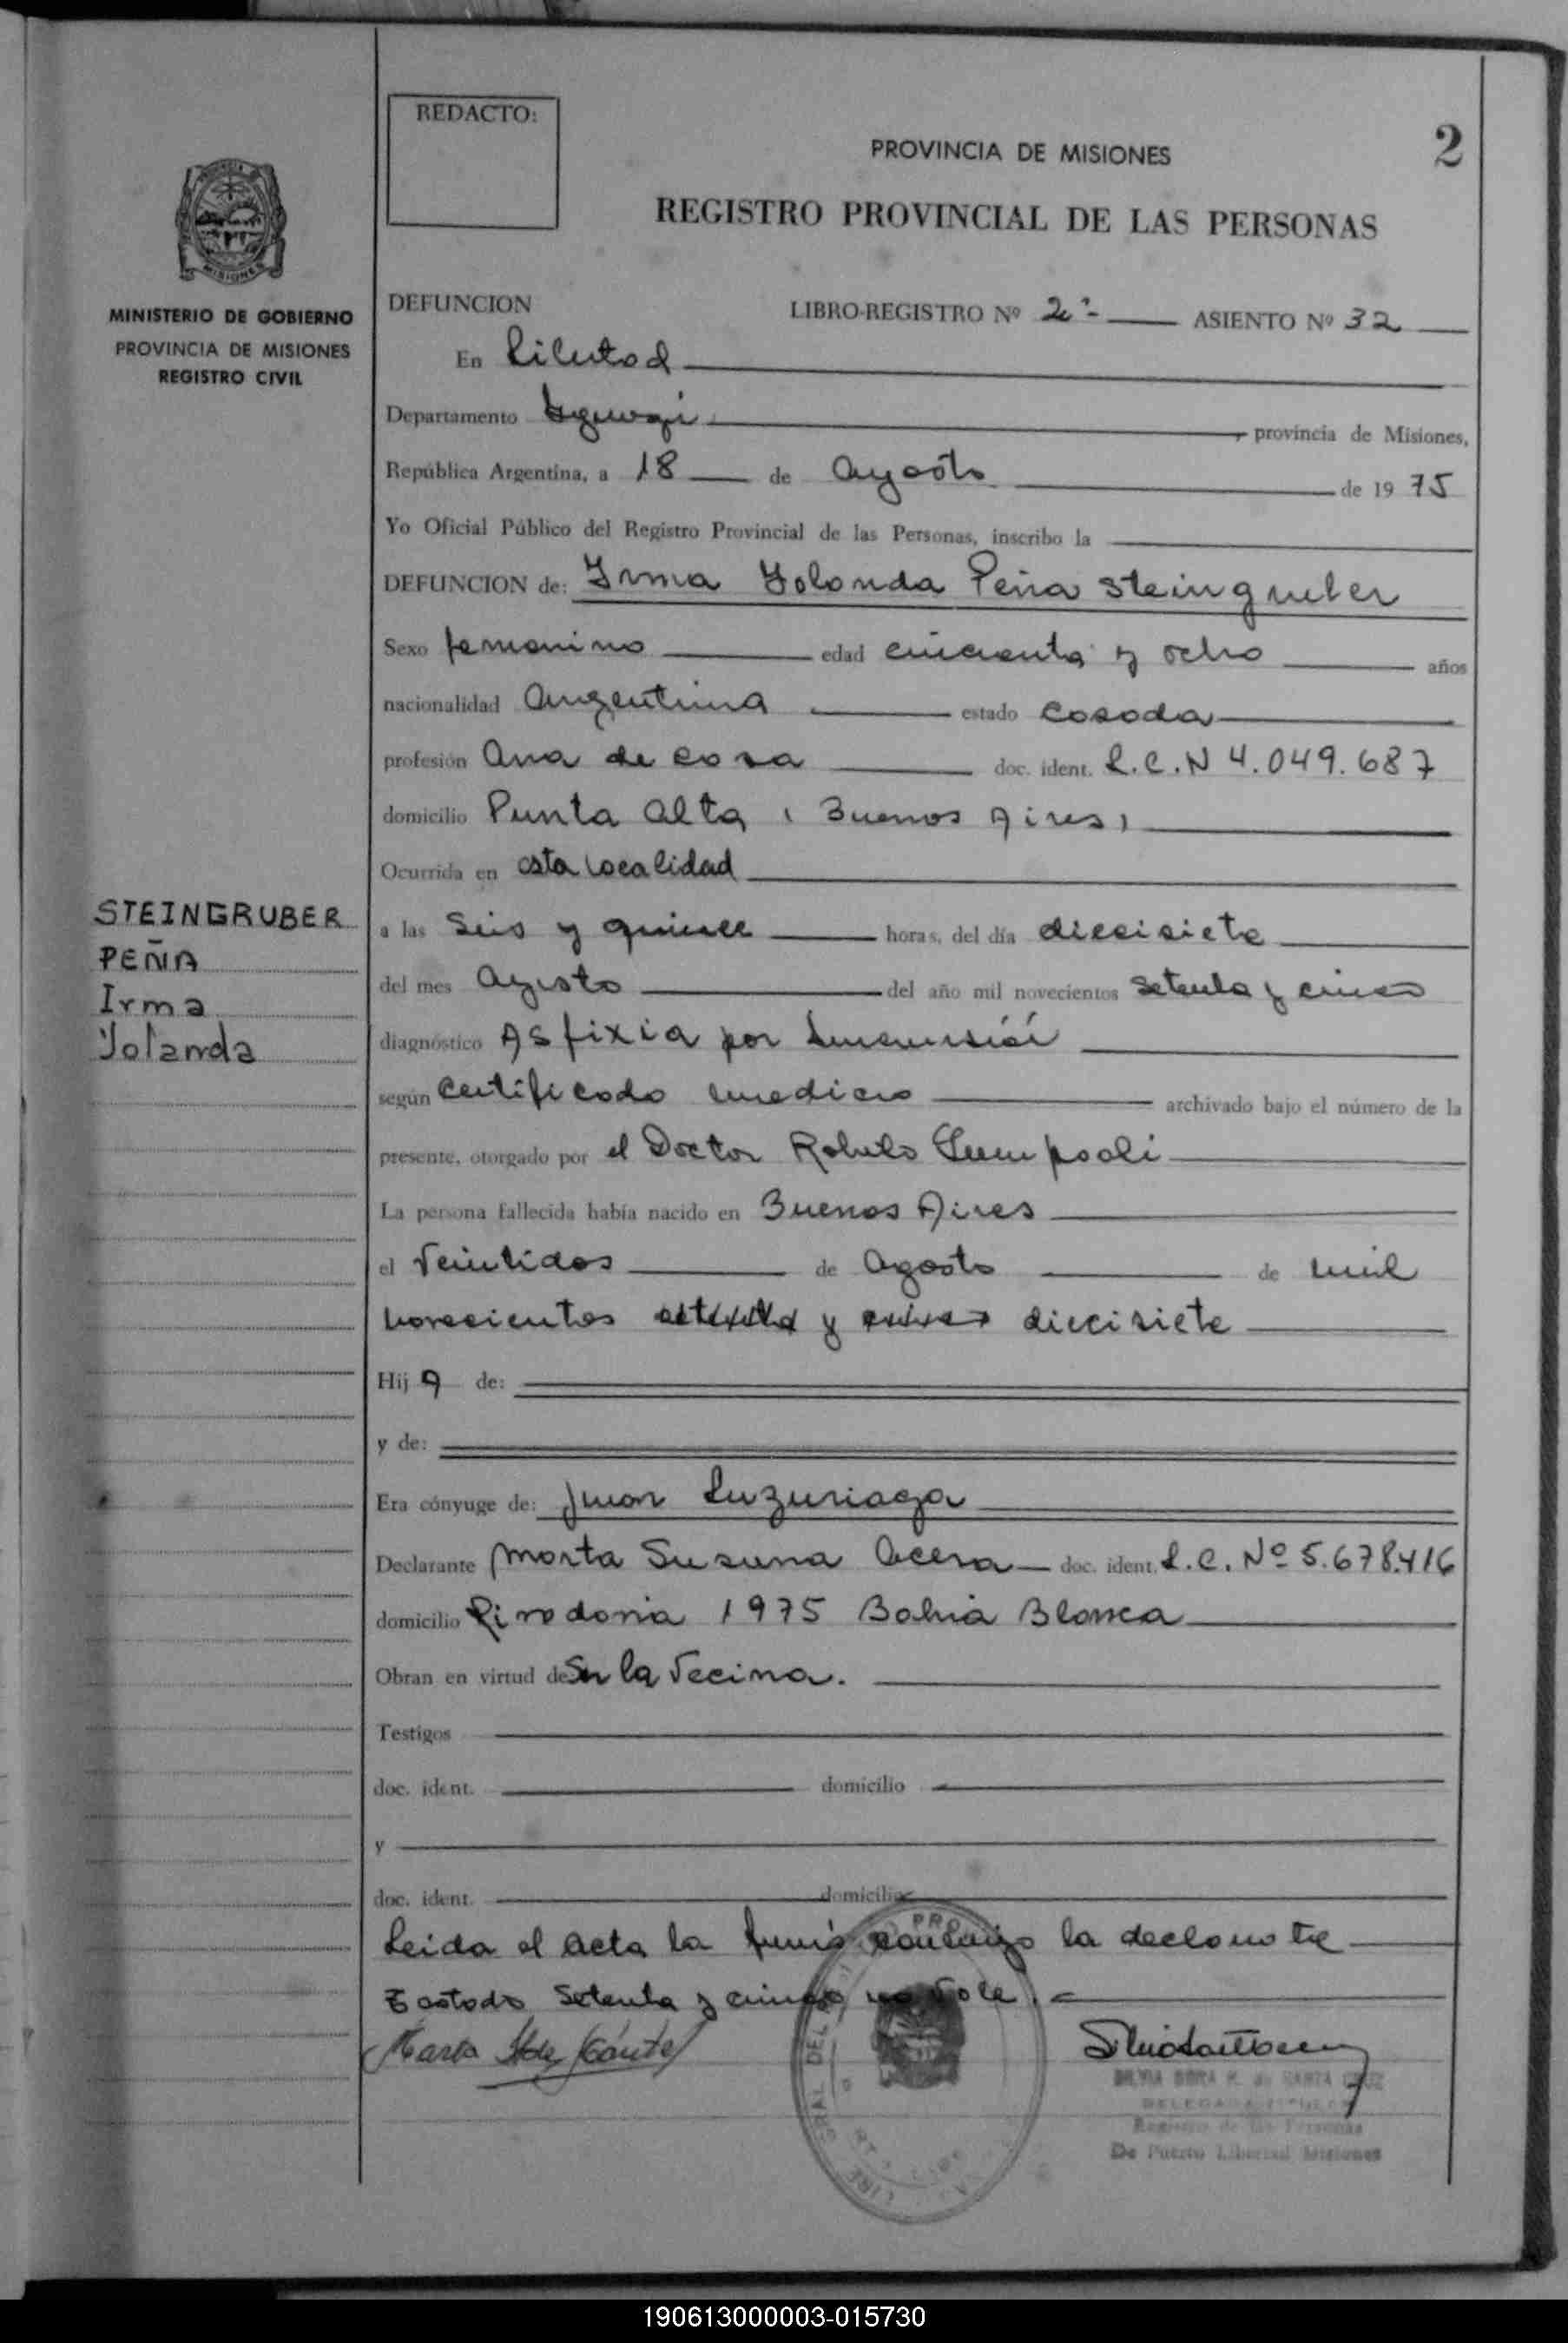 REDACTO:
2
PROVINCIA DE MISIONES
REGISTRO PROVINCIAL DE LAS PERSONAS
MISIONES
MINISTERIO DE GOBIERNO
PROVINCIA DE MISIONES
REGISTRO CIVIL
DEFUNCION LIBRO-REGISTRO Nº 2º- ASIENTO Nº 32
En Libertad
Departamento Iguazú, provincia de Misiones,
República Argentina, a 18 de Agosto de 1975
Yo Oficial Público del Registro Provincial de las Personas, inscribo la
DEFUNCION de: Irma Yolanda Peña Steingruber
Sexo femenino edad cincuenta y ocho años
nacionalidad Argentina estado casada
profesión Ama de casa doc. ident. L.C.N 4.049.687
domicilio Punta Alta, Buenos Aires,
Ocurrida en esta localidad
STEINGRUBER
PEÑA
Irma
Yolanda
a las Seis y quince horas, del día diecisiete
del mes Agosto del año mil novecientos setenta y cinco
diagnóstico Asfixia por Inmersión
según Certificado medico archivado bajo el número de la
presente, otorgado por el Doctor Roberto
La persona fallecida había nacido en Buenos Aires
el veintidos de Agosto de mil
novecientos setenta y cinco diecisiete
Hija de:
y de:
Era cónyuge de: Juan Luzuriaga
Declarante Marta Susana Acera doc. ident. L.C. Nº 5.678.416
domicilio 1975 Bahia Blanca
Obran en virtud de Ser la Vecina.
Testigos
doc. ident. domicilio
y
doc. ident. domicilio
Leida el Acta la firmó conmigo la declarante
Tastado Setenta y cinco no Vale.-
SILVIA DORA K. de SANTA CRUZ
DELEGADA TITULAR
Registro de las Personas
De Puerto Libertad Misiones
190613000003-015730